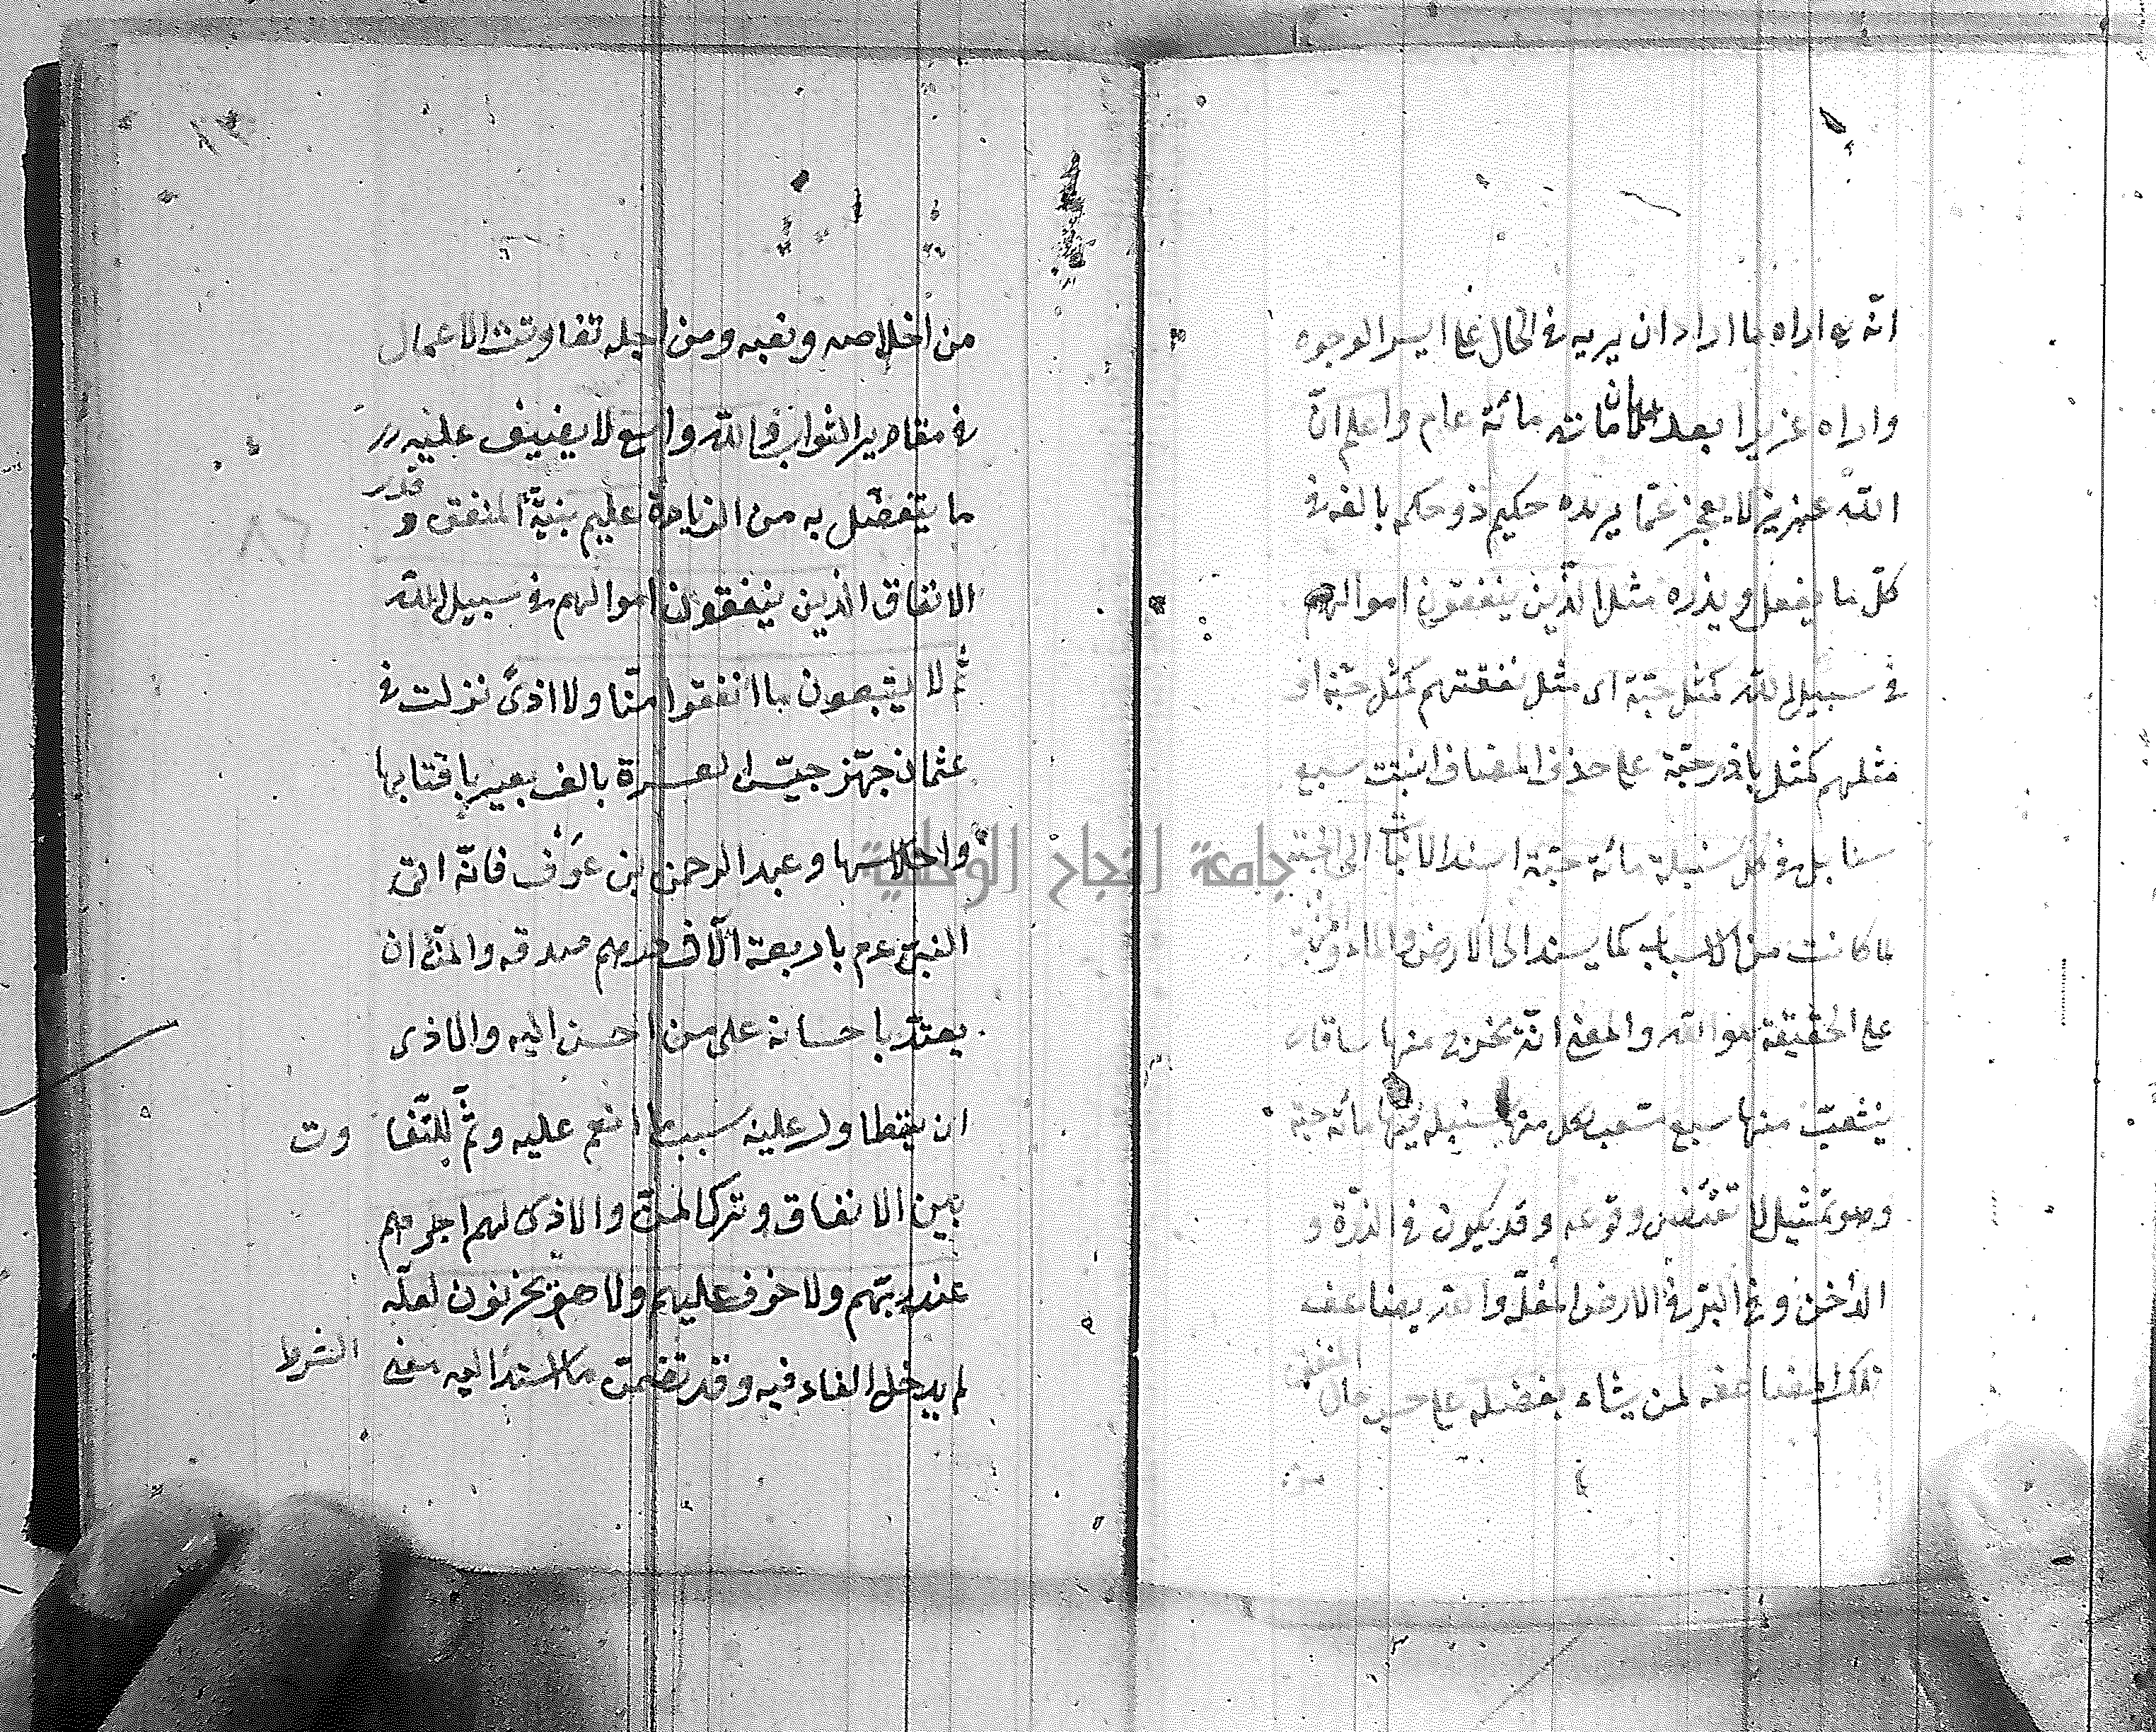 انّه تع اراه ما اراد ان يريه فى الحال على ايسر الوجوه
واراه عزيرا بعد ان اماته مائة عام واعلم انّ
الله عزيز لا يعجز عمّا يريده حكيم ذو حكمة بالغة فى
كلّ ما يفعل ويذره مثل الّذين ينفقون اموالهم
فى سبيل الله كمثل حبّة اى مثل نفقتهم كمثل حبّة او
مثلهم كمثل باذر حبّة على حذف المضاف انبتت سبع
سنابل فى كل سنبلة مائة حبّة اسند الانبات الى الحبّة
لما كانت من الاسباب كما يسند الى الارض والماء والمنبت
على الحقيقة هو الله والمعنى انّه يخرج منها ساق
ينشعب منها سبع شعب لكل منها سنبلة فيها مائة حبّة
وهو تمثيل لا تقتضى وقوعه وقد يكون فى الذرّة و
الدّخن وفى البرّ فى الارض المغلّة والله يضاعف
تلك المضاعفة لمن يشاء بفضله على حسب حال المنفق
من
من اخلاصه وتعبه ومن اجله تفاوتت الاعمال
فى مقادير الثواب والله واسع لا يضيق عليه
ما يتفضّل به من الزيادة عليم بنيّة المنفق و قدر
الانفاق الذين ينفقون اموالهم فى سبيل الله
ثمّ لا يتبعون ما انفقوا منّا ولا اذىً نزلت فى
عثمان جهّز جيش العسرة بالف بعير باقتابها
واحلاسها وعبد الرحمن بن عَوْف فانّه اتى
النبىّ عم باربعة آلاف درهم صدقه والمنّ ان
يعتدّ باحسانه على من احسن اليه والاذى
ان يتطاول عليه بسبب ما انعم عليه وثمّ للتّفاوت
بين الانفاق وترك المنّ والاذى لهم اجرهم
عند ربّهم ولا خوف عليهم ولا هم يحزنون لعلّه
لم يدخل الفاء فيه وقد تضمّن ما اسند اليه معنى الشرط
جامعة النجاح الوطنية